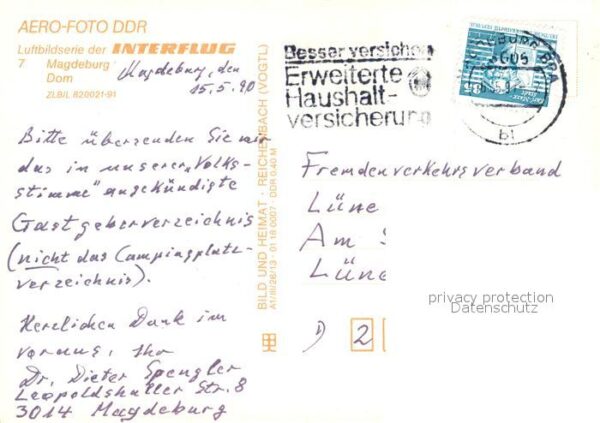 AERO-FOTO DDR
Luftbildserie der INTERFLUG
7 Magdeburg
Dom
ZLBIL 820021-91
Magdeburg, den
15.5.90
Bitte überzenden Sie mir
das in unserer „Volks-
stimme" angekündigte
Gastgeberverzeichnis
(nicht das Campingplatz-
verzeichnis).
Herzlichen Dank im
voraus, Ihr
Dr. Dieter Spengler
Leopoldshaller Str. 8
3014 Magdeburg
BILD UND HEIMAT · REICHENBACH (VOGTL)
A1/III/26/13 · 01 18 0007 · DDR 0,40 M
Besser versichern
Erweiterte
Haushalt-
versicherung
MAGDEBURG BPA
bl
Fremdenverkehrsverband
Lüne
Am
Lüne
D 2
privacy protection
Datenschutz